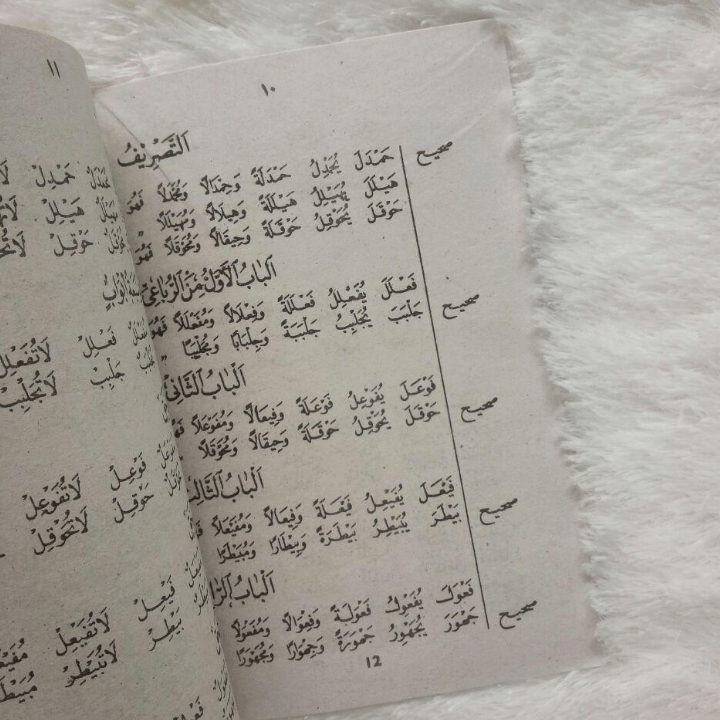 ١٠
اَلتَّصْرِيْفُ
صحيح
حَمْدَلَ يُحَمْدِلُ حَمْدَلَةً وَحِمْدَالًا وَمُحَمْدَلًا فَهُوَ
هَيْلَلَ يُهَيْلِلُ هَيْلَلَةً وَهِيْلَالًا وَمُهَيْلَلًا
حَوْقَلَ يُحَوْقِلُ حَوْقَلَةً وَحِيْقَالًا وَمُحَوْقَلًا فَهُوَ
اَلْبَابُ الْأَوَّلُ مِنَ الرُّبَاعِيِّ
صحيح
فَعْلَلَ يُفَعْلِلُ فَعْلَلَةً وَفِعْلَالًا وَمُفَعْلَلًا فَهُوَ
جَلْبَبَ يُجَلْبِبُ جَلْبَبَةً وَجِلْبَابًا وَمُجَلْبَبًا
اَلْبَابُ الثَّانِى
صحيح
فَوْعَلَ يُفَوْعِلُ فَوْعَلَةً وَفِيْعَالًا وَمُفَوْعَلًا
حَوْقَلَ يُحَوْقِلُ حَوْقَلَةً وَحِيْقَالًا وَمُحَوْقَلًا
اَلْبَابُ الثَّالِثُ
صحيح
فَيْعَلَ يُفَيْعِلُ فَيْعَلَةً وَفِيْعَالًا وَمُفَيْعَلًا
بَيْطَرَ يُبَيْطِرُ بَيْطَرَةً وَبِيْطَارًا وَمُبَيْطَرًا
صحيح
فَعْوَلَ يُفَعْوِلُ فَعْوَلَةً وَفِعْوَالًا وَمُفَعْوَلًا
جَهْوَرَ يُجَهْوِرُ جَهْوَرَةً وَجِهْوَارًا وَمُجَهْوَرًا
12
١١
حَمْدِلْ
هَيْلِلْ
حَوْقِلْ
فَعْلِلْ لَاتُفَعْلِلْ
جَلْبِبْ لَاتُجَلْبِبْ
فَوْعِلْ لَاتُفَوْعِلْ
حَوْقِلْ لَاتُحَوْقِلْ
فَيْعِلْ لَاتُفَيْعِلْ
بَيْطِرْ لَاتُبَيْطِرْ